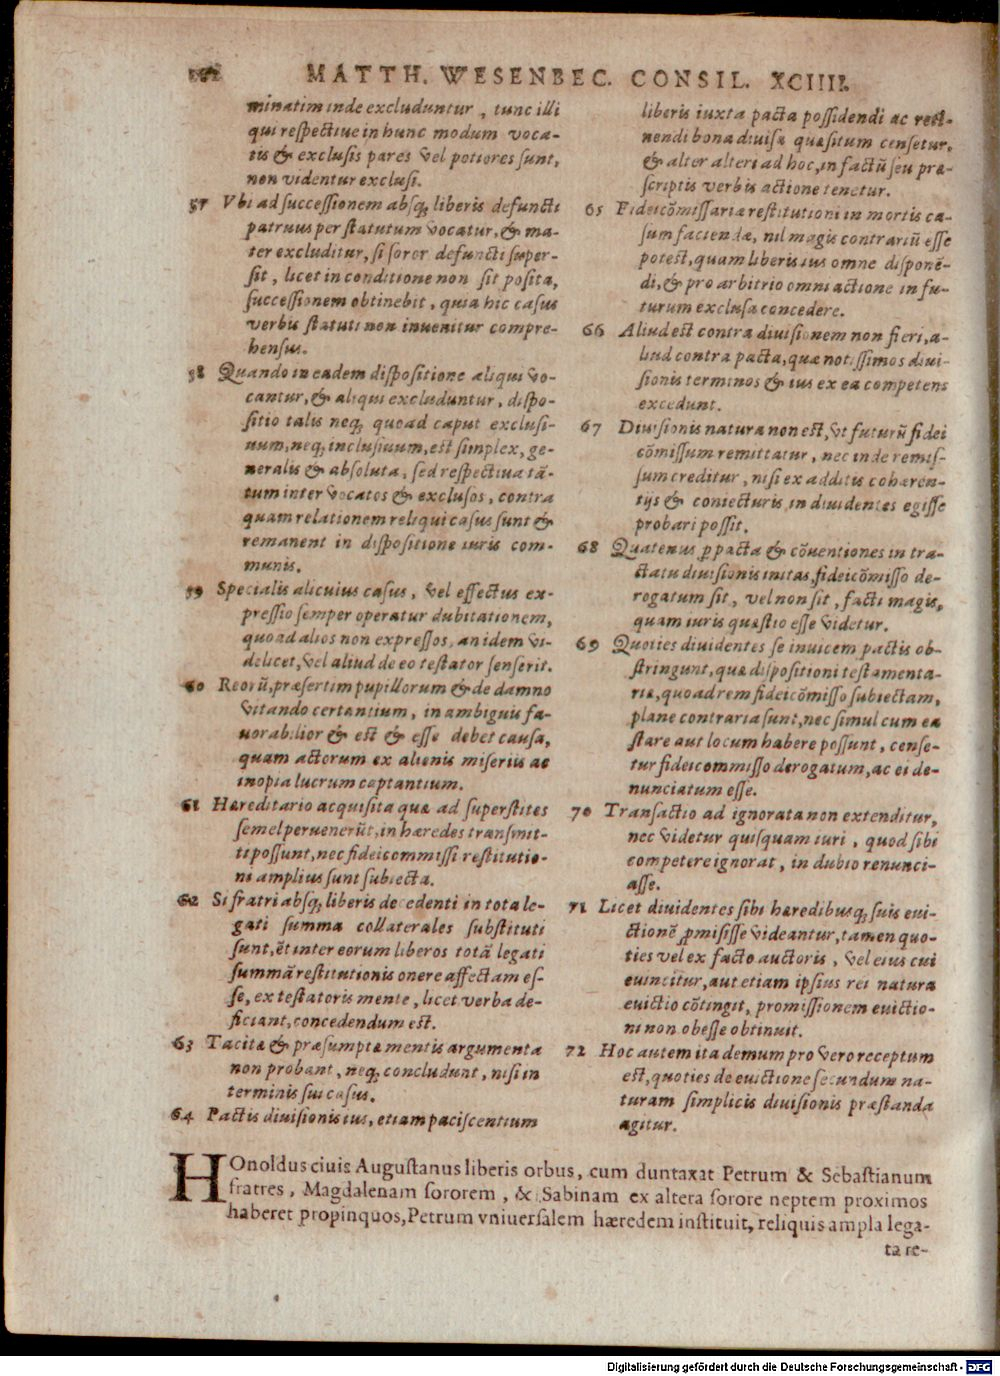 MATTH. WESENBEC. CONSIL. XCIIII.
minatim inde excluduntur, tunc illi
qui respectiue in hunc modum voca-
tis & exclusis pares vel potiores sunt,
non videntur exclusi.
57 Vbi ad successionem absq; liberis defuncti
patruus per statutum vocatur, & ma-
ter excluditur, si soror defuncti super-
sit, licet in conditione non sit posita,
successionem obtinebit, quia hic casus
verbis statuti non inuenitur compre-
hensus.
58 Quando in eadem dispositione aliqui vo-
cantur, & aliqui excluduntur, dispo-
sitio talis neq; quoad caput exclusi-
uum, neq; inclusiuum, est simplex, ge-
neralis & absoluta, sed respectiua tā-
tum inter vocatos & exclusos, contra
quam relationem reliqui casus sunt &
remanent in dispositione iuris com-
munis.
59 Specialis alicuius casus, vel effectus ex-
pressio semper operatur dubitationem,
quoad alios non expressos, an idem vi-
delicet, vel aliud de eo testator senserit.
60 Reorū, præsertim pupillorum & de damno
vitando certantium, in ambiguis fa-
uorabilior & est & esse debet causa,
quam actorum ex alienis miseriis ac
inopia lucrum captantium.
61 Hæreditario acquisita quæ ad superstites
semel peruenerūt, in hæredes transmit-
ti possunt, nec fideicommissi restitutio-
ni amplius sunt subiecta.
62 Si fratri absq; liberis decedenti in tota le-
gati summa collaterales substituti
sunt, ēt inter eorum liberos totā legati
summā restitutionis onere affectam es-
se, ex testatoris mente, licet verba de-
ficiant, concedendum est.
63 Tacitæ & præsumptæ mentis argumenta
non probant, neq; concludunt, nisi in
terminis sui casus.
64 Pactis diuisionis ius, etiam paciscentium
liberis iuxta pacta possidendi ac reti-
nendi bona diuisa quæsitum censetur,
& alter alteri ad hoc, in factū seu præ-
scriptis verbis actione tenetur.
65 Fideicōmissariæ restitutioni in mortis ca-
sum faciendæ, nil magis contrariū esse
potest, quam liberis ius omne disponē-
di, & pro arbitrio omni actione in fu-
turum exclusa concedere.
66 Aliud est contra diuisionem non fieri, a-
liud contra pacta, quæ notissimos diui-
sionis terminos & ius ex ea competens
excedunt.
67 Diuisionis natura non est, vt futurū fidei
cōmissum remittatur, nec inde remis-
sum creditur, nisi ex additis cohæren-
tijs & coniecturis in diuidentes egisse
probari possit.
68 Quatenus p pacta & cōuentiones in tra-
ctatu diuisionis initas, fideicōmisso de-
rogatum sit, vel non sit, facti magis,
quam iuris quæstio esse videtur.
69 Quoties diuidentes se inuicem pactis ob-
stringunt, quæ dispositioni testamenta-
riæ, quoad rem fideicōmisso subiectam,
plane contraria sunt, nec simul cum ea
stare aut locum habere possunt, cense-
tur fideicommisso derogatum, ac ei de-
nunciatum esse.
70 Transactio ad ignorata non extenditur,
nec videtur quisquam iuri, quod sibi
competere ignorat, in dubio renunci-
asse.
71 Licet diuidentes sibi hæredibusq; suis eui-
ctionē pmisisse videantur, tamen quo-
ties vel ex facto auctoris, vel eius cui
euincitur, aut etiam ipsius rei natura
euictio cōtingit, promissionem euictio-
ni non obesse obtinuit.
72 Hoc autem ita demum pro vero receptum
est, quoties de euictione secundum na-
turam simplicis diuisionis præstanda
agitur.
HOnoldus ciuis Augustanus liberis orbus, cum duntaxat Petrum & Sebastianum
fratres, Magdalenam sororem, & Sabinam ex altera sorore neptem proximos
haberet propinquos, Petrum vniuersalem hæredem instituit, reliquis ampla lega-
ta re-
Digitalisierung gefördert durch die Deutsche Forschungsgemeinschaft - DFG